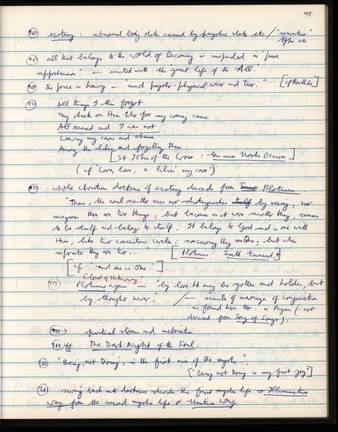 ecstasy: abnormal body state caused by psychic state etc /
all that belongs to the world of Becoming is
apprehension" - united with the great life of the All."
the price is heavy - much psycho-physical wear and tear."
All things I then forgot
My cheek on Him Who for my coming came
All ceased and I was not
Leaving my cares and shame
Among the lilies, and forgetting them.
[St John of the Cross: En una Noche Oscura]
(cf love, love, a lilies my care)
whole christian doctrine of ecstasy descends from Plotinus
"Then, the soul neither sees nor distinguishes by seeing, nor
imagines there are two things; but becomes as it were another thing, ceases
to be itself and belong to itself. It belongs to God and is one with
Him, like two concentric circles: concurring they are one; but when
separate they are two...
[Plotinus Sixth Ennead.]
[cf. 'and me is One']
Cloud of Unknowing
Plotinus again - "by love He may be gotten and holden, but
by thought never." / - simile of marriage of conjunction
is found here too, in Pagan (- not
derived from Song of Songs).
spiritual storm and
ff The Dark Night of the Soul.
"Being, not Doing, is the first aim of the mystic"
[Being not Doing is my first joy]
back into darkness divides the first mystic life or Illuminative
Way from the second mystic life or Unitive Way